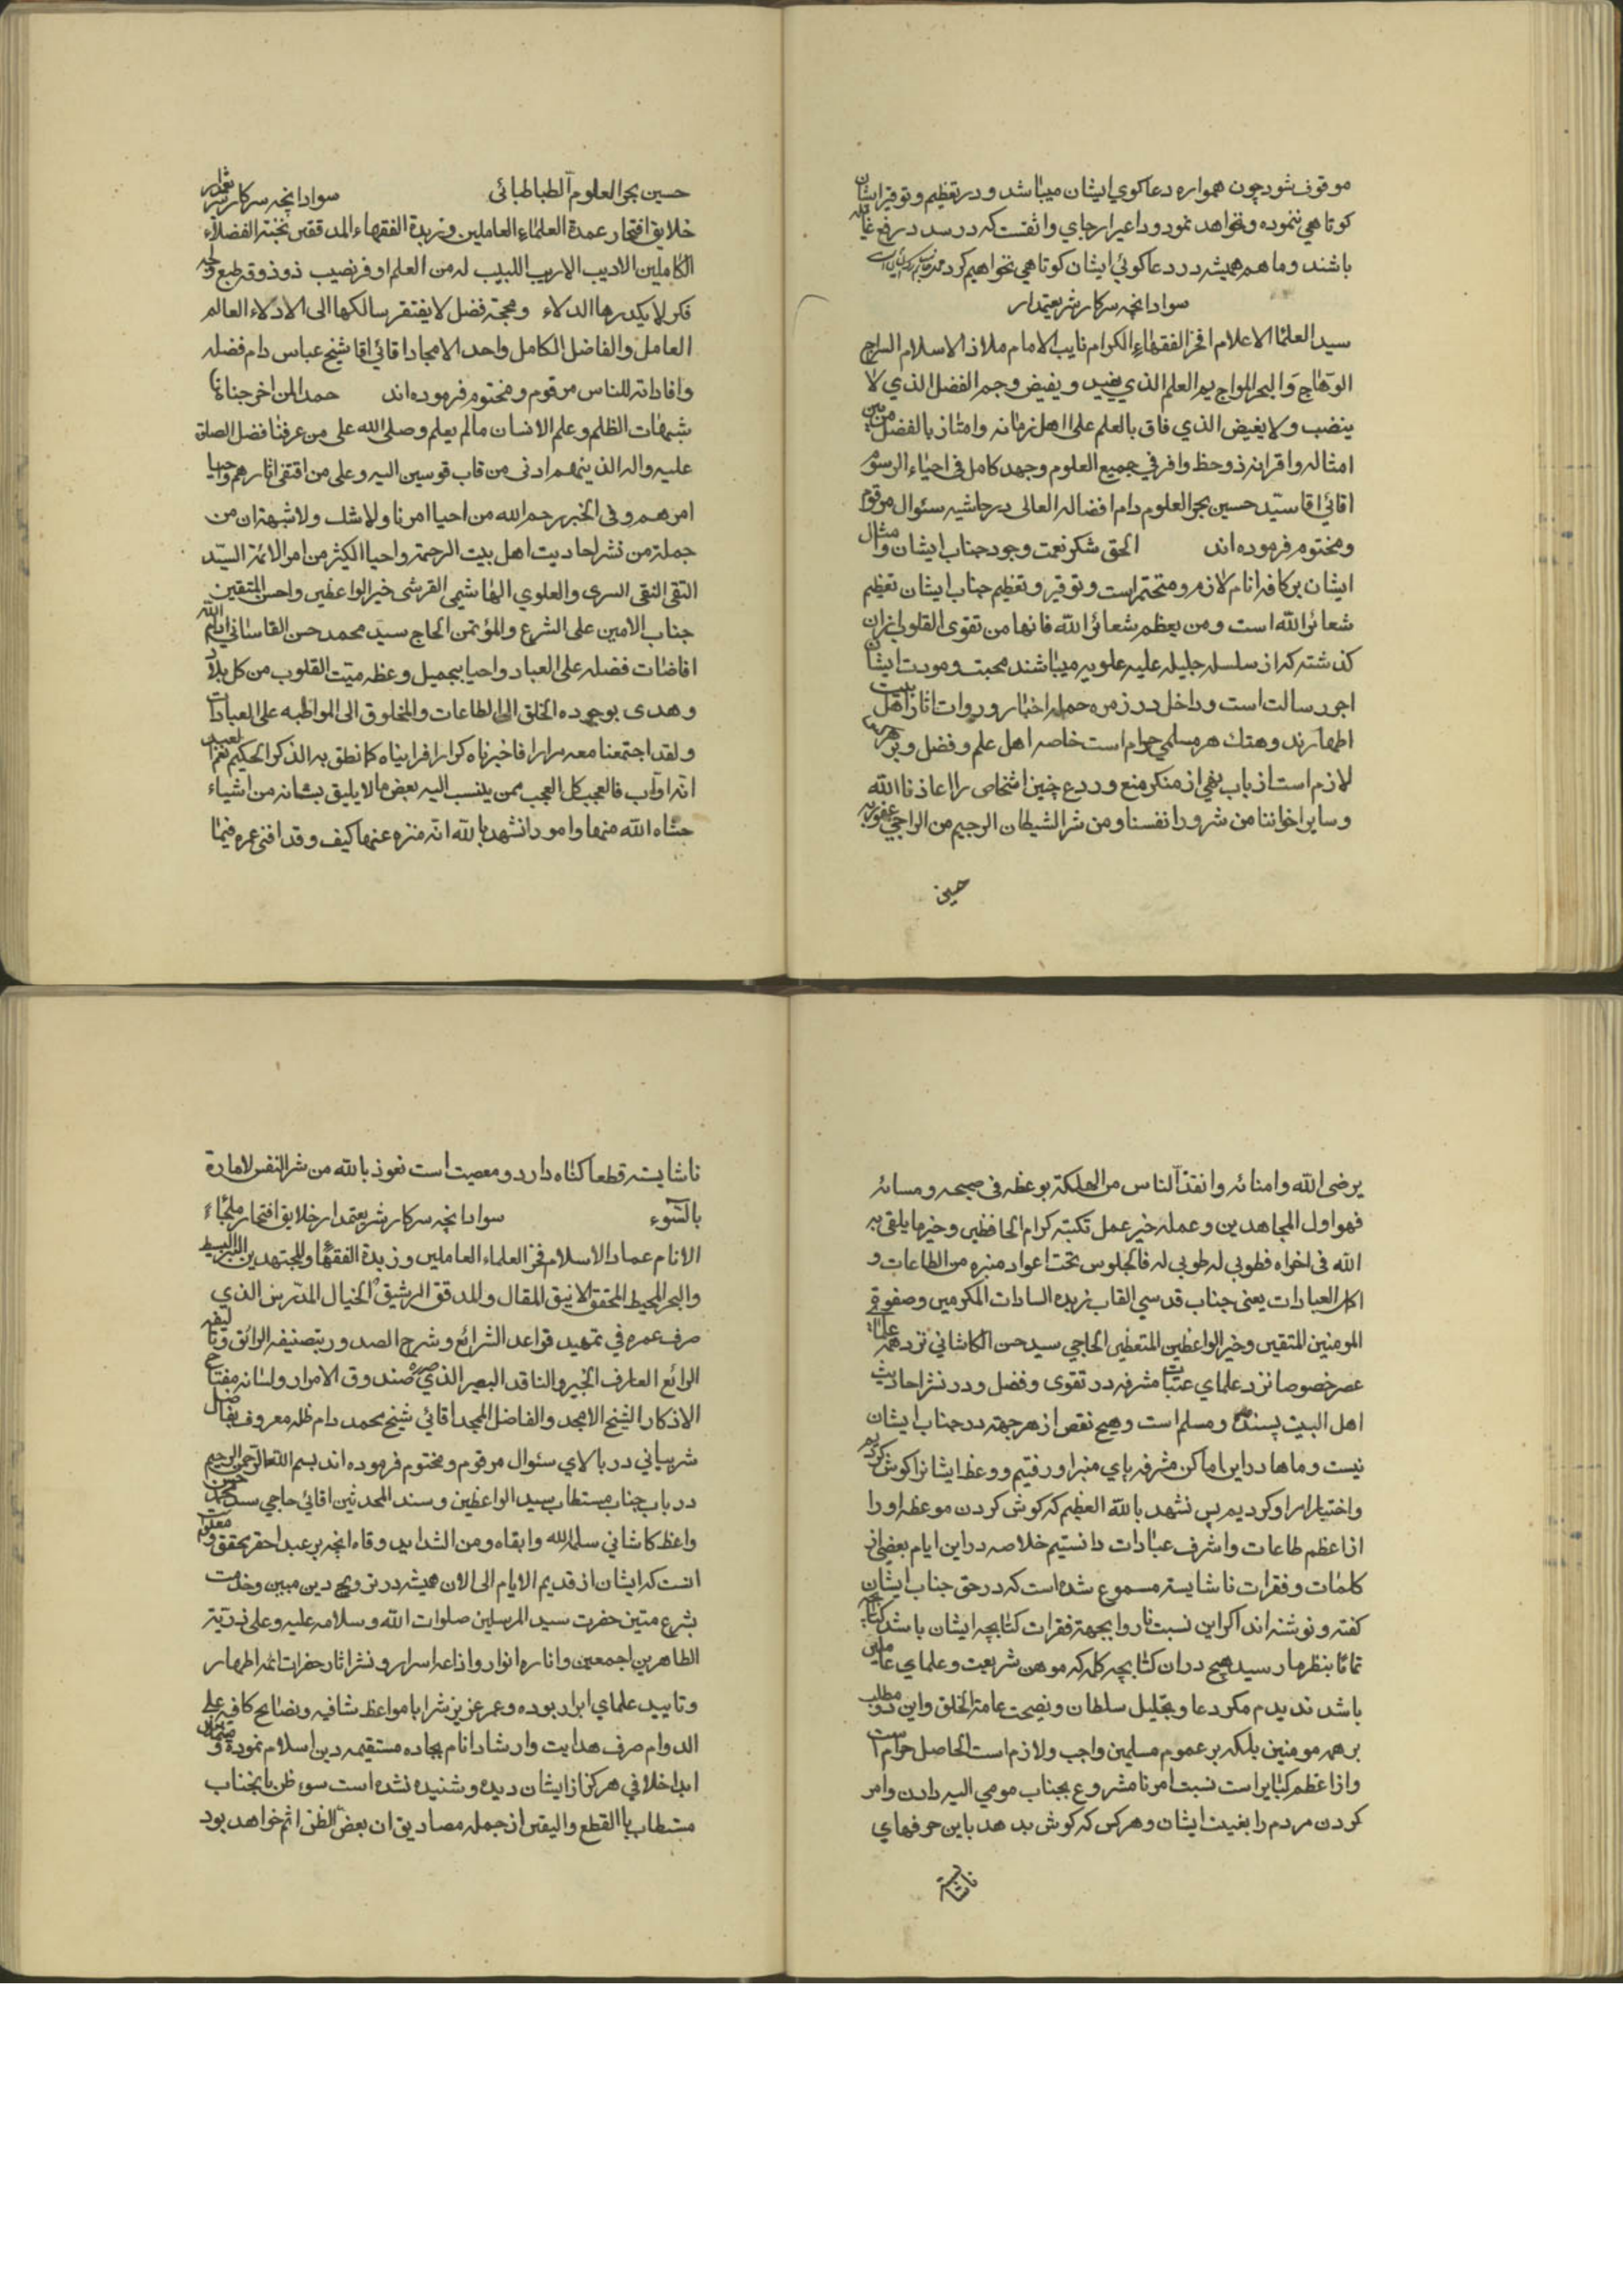 موقوف شود چون همواره دعاکوی ایشان میباشد و در تعظیم و توقیر ایشان
کوتاهی ننموده و نخواهد نمود و داعیرا رجای واثقست که در سدد رفع غائله
باشند و ما هم همیشه در دعاکوئی ایشان کوتاهی نخواهیم کرد
سواد انچه سرکار شریعتمدار
سید العلماء الاعلام افخر الفقهاء الکرام نایب الامام ملاذ الاسلام السراج
الوهاج و البحر المواج یم العلم الذی یفید و یفیض و جم الفضل الذی لا
ینضب و لا یغیض الذی فاق بالعلم علی اهل زمانه و امتاز بالفضل من بین
امثاله و اقرانه ذو حظ وافر فی جمیع العلوم و جهد کامل فی احیاء الرسوم
اقائی اقا سید حسین بحر العلوم دام افضاله العالی در حاشیه سئوال مرقوم
و مختوم فرموده اند الحق شکر نعمت وجود جناب ایشان و امثال
ایشان بر کافه انام لازم و متحتم است و توقیر و تعظیم جناب ایشان تعظیم
شعائر الله است و من یعظم شعائر الله فانها من تقوی القلوب از ان
کذشته که از سلسله جلیله علیه علویه میباشند محبت و مودت ایشان
اجر رسالت است و داخل در زمره حمله اخبار و روات اثار اهل بیت
اطهارند و هتک هر مسلمی حرام است خاصه اهل علم و فضل و بر هر مسلم
لازم است از باب نهی از منکر منع و ردع چنین اشخاص را اعاذنا الله
و سایر اخواننا من شرور انفسنا و من شر الشیطان الرجیم من الراجی عفو ربه
حسین
حسین بحر العلوم آلطباطبائی سواد انچه سرکار شریعتمدار
خلایق افتخار عمدة العلماء العاملین و زبدة الفقهاء المدققین نخبة الفضلاء
الکاملین الادیب الاریب اللبیب له من العلم اوفر نصیب ذو ذوقه طبع و لجه
فکر لا یکدرها الدلاء و محجة فضل لا یفتقر سالکها الی الادلاء العالم
العامل و الفاضل الکامل واحد الامجاد اقائی اقا شیخ عباس دام فضله
و افاداته للناس مرقوم و مختوم فرموده اند حمدا لمن اخرجنا من
شبهات الظلم و علم الانسان ما لم یعلم و صلی الله علی من عرفنا فضل الصلاة
علیه و اله الذین هم ادنی من قاب قوسین الیه و علی من اقتفی اثارهم و احیا
امرهم و فی الخبر رحم الله من احیا امرنا و لا شک و لا شبهة ان من
جملة من نشر احادیث اهل بیت الرحمة و احیا الکثیر من امر الائمة السید
التقی النقی السری و العلوی الهاشمی القرشی خیر الواعظین و احسن المتقین
جناب الامین علی الشرع و المؤتمن الحاج سید محمد حسن القاسانی ادام الله
افاضات فضله علی العباد و احیا بجمیل وعظه میت القلوب من کل بلاد
و هدی بوجوده الخلق الی الطاعات و المخلوق الی المواظبه علی العبادات
و لقد اجتمعنا معه مرارا فاخبرناه کرارا فراینا‌ه کما نطق به الذکر الحکیم نعم العبد
انه اواب فالعجب کل العجب ممن ینسب الیه بعض ما لا یلیق بشانه من اشیاء
حشاه الله منها و امور انشهد بالله انه منزه عنها کیف و قد افنی عمره فیما
یرضی الله و امنائه و انقذ الناس من الهلکة بوعظه فی صبحه و مسائه
فهو اول المجاهدین و عمله خیر عمل تکتبه کرام الحافظین و خیر ما یلقی به
الله فی اخراه فطوبی له طوبی له فالجلوس تحت اعواد منبره من الطاعات و
اکمل العبادات یعنی جناب قدسی القاب زبده السادات المکرمین و صفوة
المومنین المتقین و خیر الواعظین المتعظین الحاجی سید حسن الکاشانی نزد همه علماء
عصر خصوصا نزد علمای عتبات مشرفه در تقوی و فضل و در نشر احادیث
اهل البیت پسند و مسلم است و هیچ نقص از هر جهة در جناب ایشان
نیست و ماها در این اماکن مشرفه پای منبر او رفتیم و وعظ ایشانرا کوش کردیم
و اختیارا مر او کردیم پس نشهد بالله العظیم که کوش کردن موعظه او را
از اعظم طاعات و اشرف عبادات دانستیم خلاصه در این ایام بعضی از
کلمات و فقرات ناشایسته مسموع شده است که در حق جناب ایشان
کفته و نوشته اند اکر این نسبت ناروا بجهة فقرات کتابچه ایشان باشد کتابچه
تماما بنظر ما رسید هیچ در ان کتابچه کلمه که موهن شریعت و علمای عاملین
باشد ندیدم مکر دعا و تجلیل سلطان و نصیحت عامة الخلق و این دو مطلب
بر همه مومنین بلکه بر عموم مسلمین واجب و لازم است الحاصل حرام است
و از اعظم کبایر است نسبت امر نامشروع بجناب مومی الیه دادن و امر
کردن مردم را بغیبت ایشان و هر کس که کوش بدهد باین حرفهای
ناشایسته
ناشایسته قطعا کناه دارد و معصیت است نعوذ بالله من شر النفس لامارة
بالسوء سواد انچه سرکار شریعتمدار خلایق افتخار ملجاء
الانام عماد الاسلام فخر العلماء العاملین و زبدة الفقهاء و المجتهدین البر البسیط
و البحر المحیط المحقق الانیق المقال و المدقق الرشیق الخیال المدرس الذی
صرف عمره فی تمهید قواعد الشرائع و شرح الصدور بتصنیفه الرائق و تالیفه
الرائع العارف الخبیر و الناقد البصیر الذی صدره صندوق الاسرار و لسانه مفتاح
الاذکار الشیخ الامجد و الفاضل الممجد اقائی شیخ محمد دام ظله معروف بفاضل
شربیانی در بالای سئوال مرقوم و مختوم فرموده اند بسم الله الرحمن الرحیم
در باب جناب مستطاب سید الواعظین و سند المحدثین اقائی حاجی سید محمد حسن
واعظ کاشانی سلمه الله و ابقاه و من الشداید وقاه انچه بر عبد احقر محقق و معلوم
انست که ایشان از قدیم الایام الی الان همیشه در ترویج دین مبین و خدمت
بشرع متین حضرت سید المرسلین صلوات الله و سلامه علیه و علی ذریّة
الطاهرین اجمعین و اناره انوار و اذاعه اسرار و نشر اثار حضرات ائمه اطهار
و تایید علمای ابرار بوده و عمر عزیزش را با مواعظ شافیه و نصایح کافیه علی
الدوام صرف هدایت و ارشاد انام بجاده مستقیمه دین اسلام نموده و
ابدا خلافی هرکز از ایشان دیده و شنیده نشده است سوء ظن بانجناب
مستطاب باالقطع و الیقین از جمله مصادیق ان بعض الظن اثم خواهد بود